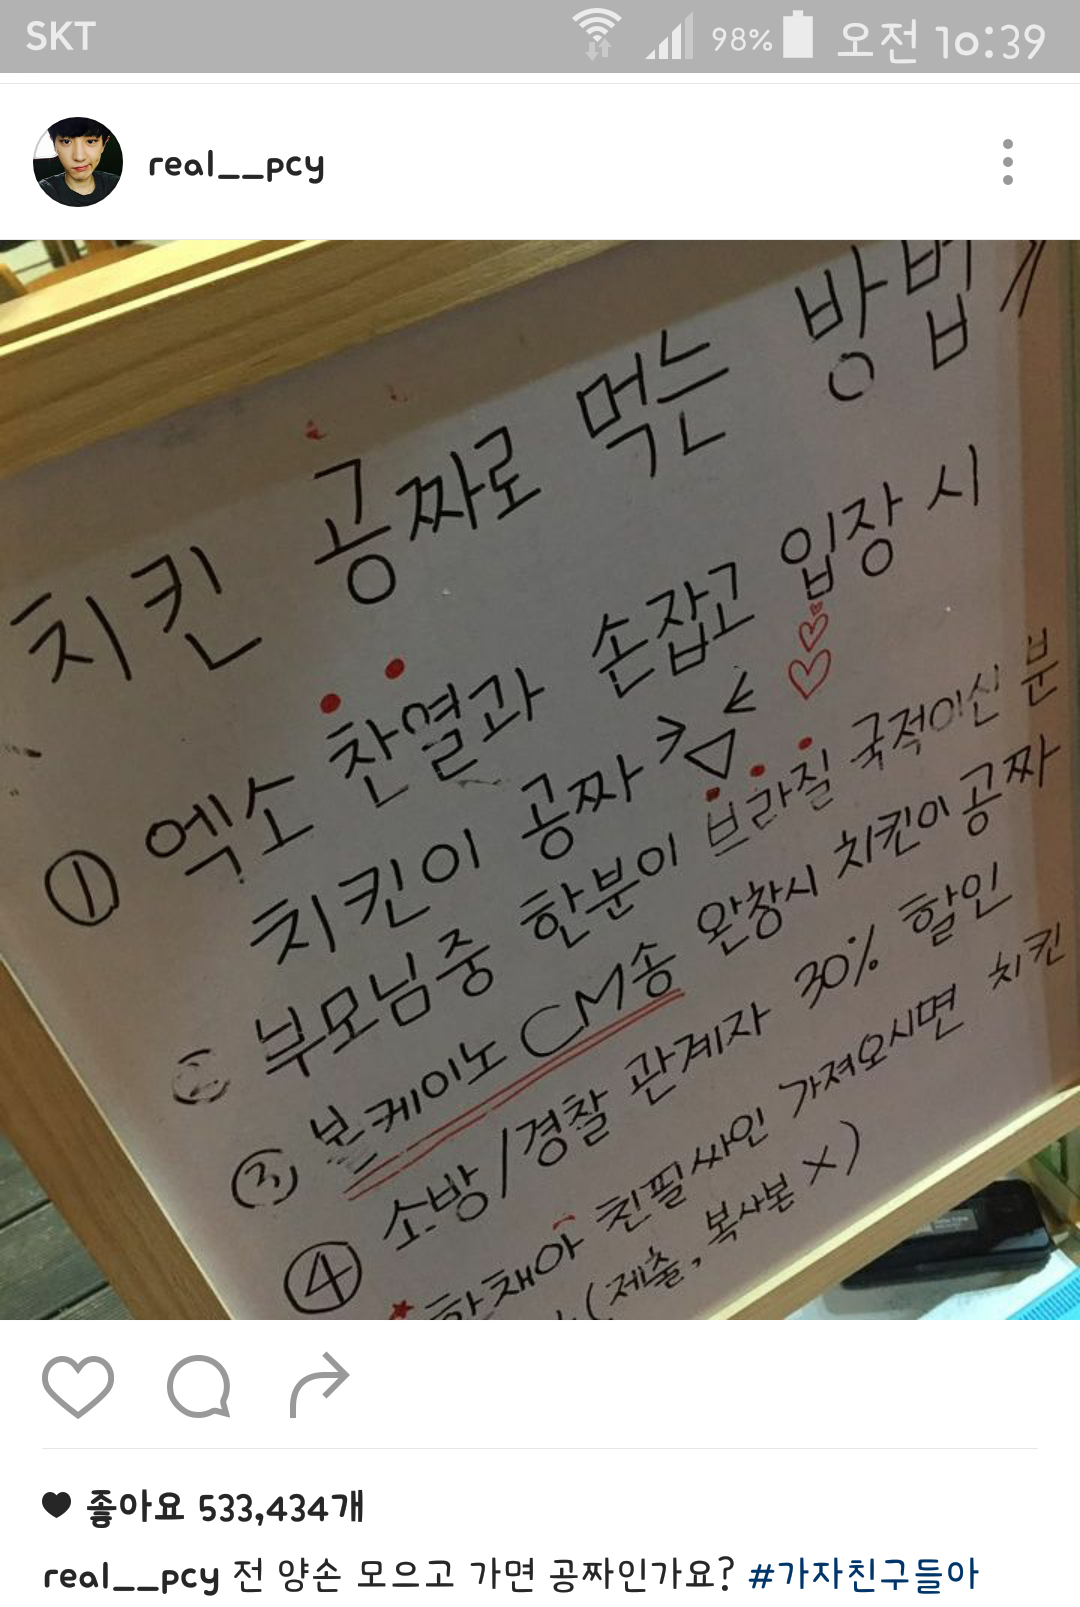 SKT 98% 오전 10:39
real__pcy
치킨 공짜로 먹는 방법
① 엑소 찬열과 손잡고 입장 시
치킨이 공짜
② 부모님중 한분이 브라질 국적이신 분
③ 보케이노 CM송 완창시 치킨이 공짜
④ 소방/경찰 관계자 30% 할인
한채아 친필싸인 가져오시면 치킨
(제출, 복사본 X)
좋아요 533,434개
real__pcy 전 양손 모으고 가면 공짜인가요? #가자친구들아